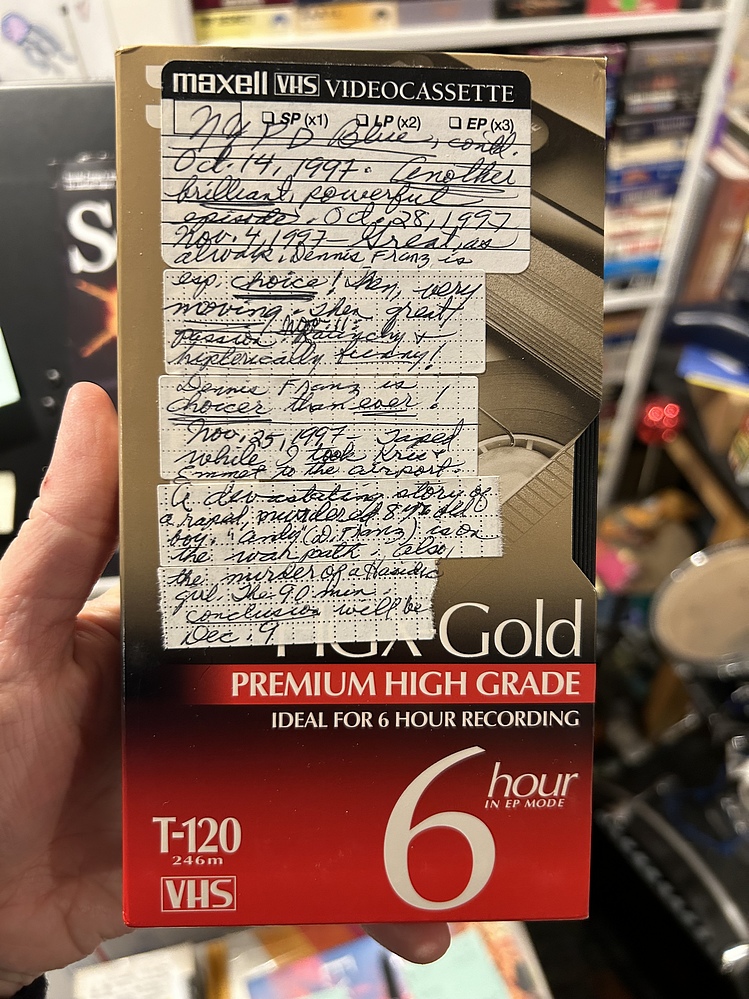 maxell VHS VIDEOCASSETTE
SP (x1) LP (x2) EP (x3)
NYPD Blue, contd.
Oct. 14, 1997. Another
brilliant, powerful
episode. Oct. 28, 1997
Nov. 4, 1997 - Great, as
always. Dennis Franz is
esp. choice! Then, very
moving. Then great
passion. Now!!! Raunchy +
hysterically funny!
Dennis Franz is
choicer than ever!
Nov. 25, 1997 - Taped
while I took Kris +
Emmet to the airport.
A devastating story of
a raped, murdered 8 yr. old
boy. "Andy" (D. Franz) is on
the warpath. (also,
the murder of a Hasidic
girl. The 90 min.
conclusion will be
Dec. 9.
HGX-Gold
PREMIUM HIGH GRADE
IDEAL FOR 6 HOUR RECORDING
6 hour
IN EP MODE
T-120
246m
VHS